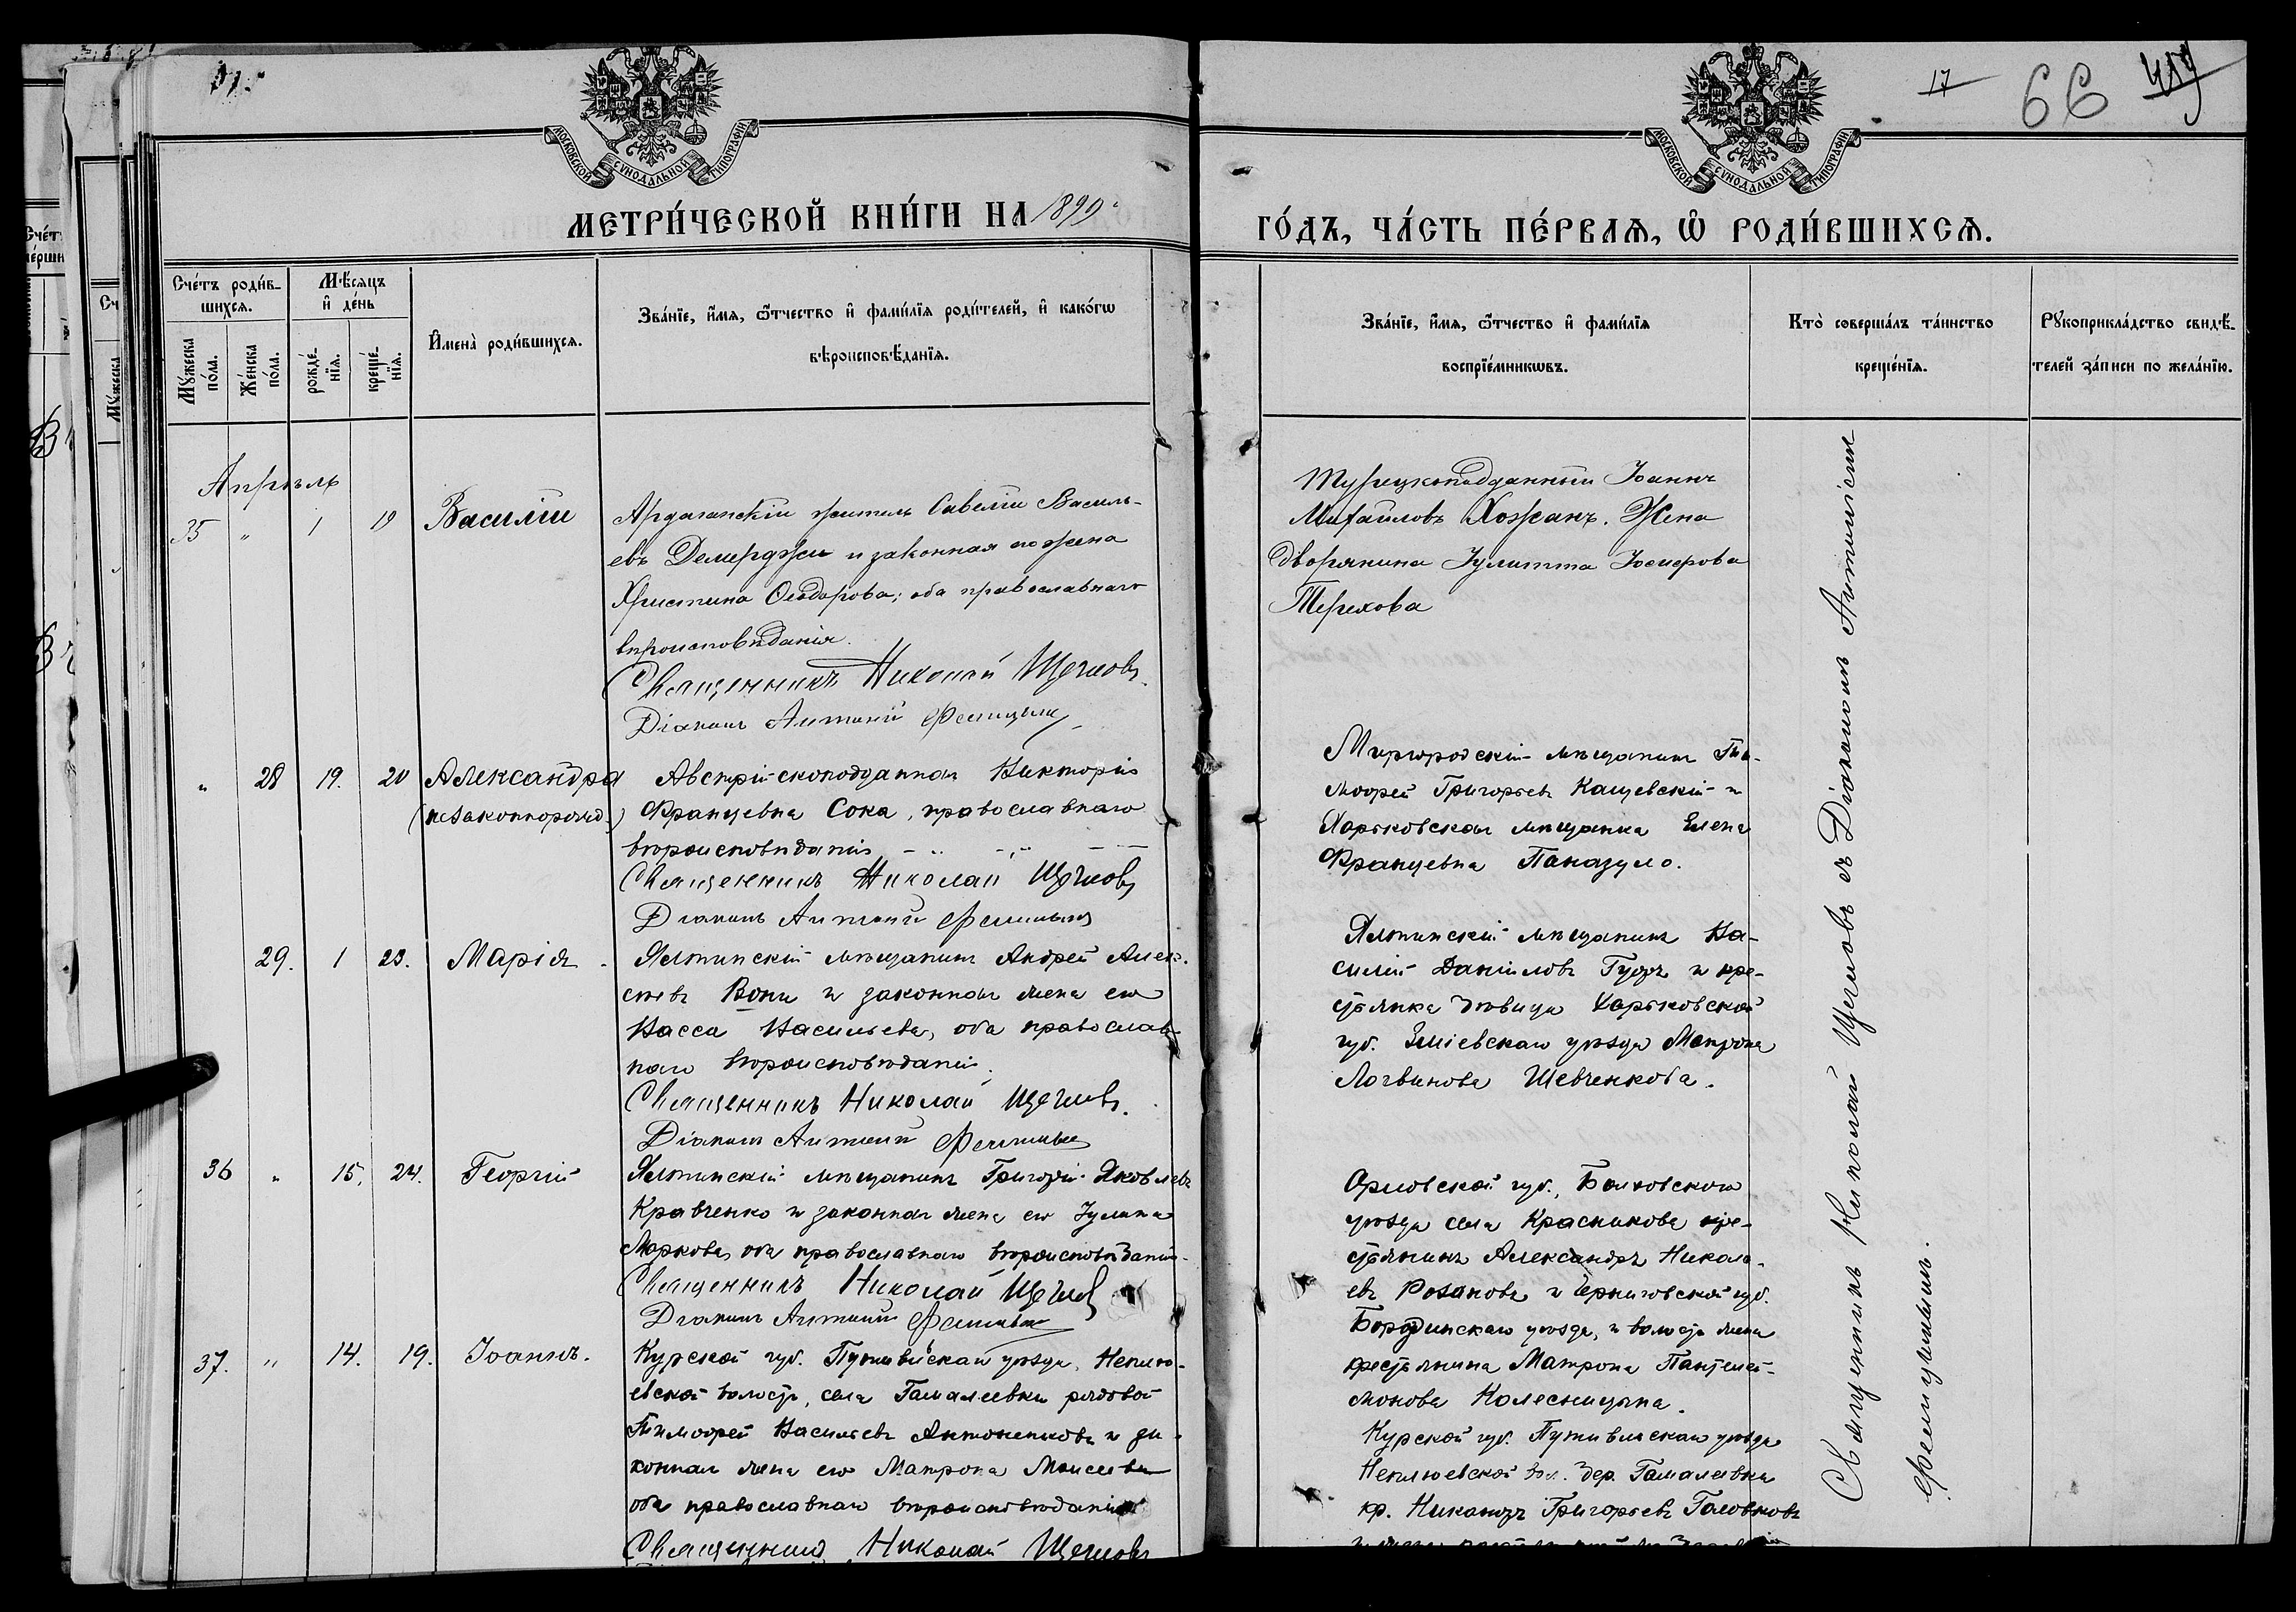 17
66
МОСКОВСКОЙ СѴНОДАЛЬНОЙ ТИПОГРАФІИ
МОСКОВСКОЙ СѴНОДАЛЬНОЙ ТИПОГРАФІИ
МЕТРИ́ЧЕСКОЙ КНИ́ГИ НА 1899
ГО́ДЪ, ЧА́СТЬ ПЕ́РВАѦ, Ѡ҆ РОДИ́ВШИХСѦ.
Сче́тъ роди́в-
шихся.
Мꙋ́жеска по́ла.
Же́нска по́ла.
Мѣ́сяцъ и҆ де́нь
рожде́-нїя.
креще́-нїя.
И҆мена̀ роди́вшихся.
Зва́нїе, и҆́мя, ѻ҆́тчество и҆ фами́лїя роди́телей, и҆ како́гѡ
вѣроисповѣ́данїя.
Зва́нїе, и҆́мя, ѻ҆́тчество и҆ фами́лїя
воспрїе́мникѡвъ.
Кто̀ соверша́лъ та́инство
креще́нїя.
Рꙋкоприкла́дство свидѣ́-
телей за́писи по жела́нїю.
Апрѣль
35 " 1 19 Василій
Ардаганскій житель Савелій Василь-
евъ Демирджи и законная его жена
Христина Ѳеодорова; оба православнаго
вѣроисповѣданія.
Священникъ Николай Щегловъ
Діаконъ Антоній
Турецкоподданный Іоаннъ
Михайловъ Хожанъ. Жена
дворянина Іулитта Іосифова
Терехова
" 28 19. 20 Александра
(незаконнорожд.)
Австрійскоподданная Викторія
Францевна Сока, православнаго
вѣроисповѣданія
Священникъ Николай Щегловъ
Діаконъ Антоній
Миргородскій мѣщанинъ Ти-
моѳей Григорьевъ Кащевскій и
Харьковская мѣщанка Елена
Францевна Паназуло.
29. 1 23. Марія
Ялтинскій мѣщанинъ Андрей Алек-
сѣевъ Вони и законная жена его
Васса Васильева, оба православ-
наго вѣроисповѣданія.
Священникъ Николай Щегловъ.
Діаконъ Антоній
Ялтинскій мѣщанинъ Ва-
силій Даніиловъ Гудзь и кре-
стьянка дѣвица Харьковской
губ. Зміевскаго уѣзда Матрона
Логвинова Шевченкова.
36 " 15. 24. Георгій
Ялтинскій мѣщанинъ Григорій Яковлевъ
Кравченко и законная жена его Іулита
Маркова, оба православнаго вѣроисповѣданія.
Священникъ Николай Щегловъ
Діаконъ Антоній
Орловской губ., Болховскаго
уѣзда села Красникова кре-
стьянинъ Александръ Никола-
евъ Розановъ и Черниговской губ.
уѣзда, и волости жена
крестьянина Матрона Пантелей-
монова Колесницына.
37. " 14. 19. Іоаннъ.
Курской губ. Путивльскаго уѣзда, Неплю-
евской волости, села Гамалеевки рядовой
Тимоѳей Васильевъ Антоненковъ и за-
конная жена его Матрона Моисеева
оба православнаго вѣроисповѣданія
Священникъ Николай Щегловъ
Курской губ. Путивльскаго уѣзда
Неплюевской вол. дер. Гамалеевки
кр. Никаноръ Григорьевъ Головковъ
Священникъ Николай Щегловъ съ Діакономъ Антоніемъ